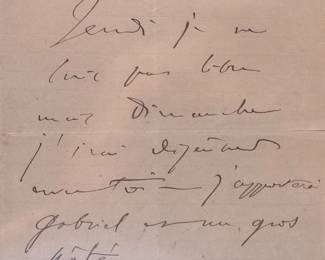 Jeudi je ne
suis pas libre
mais dimanche
j'irai déjeuner
avec toi — j'apporterai
gabriel et un gros
pâté